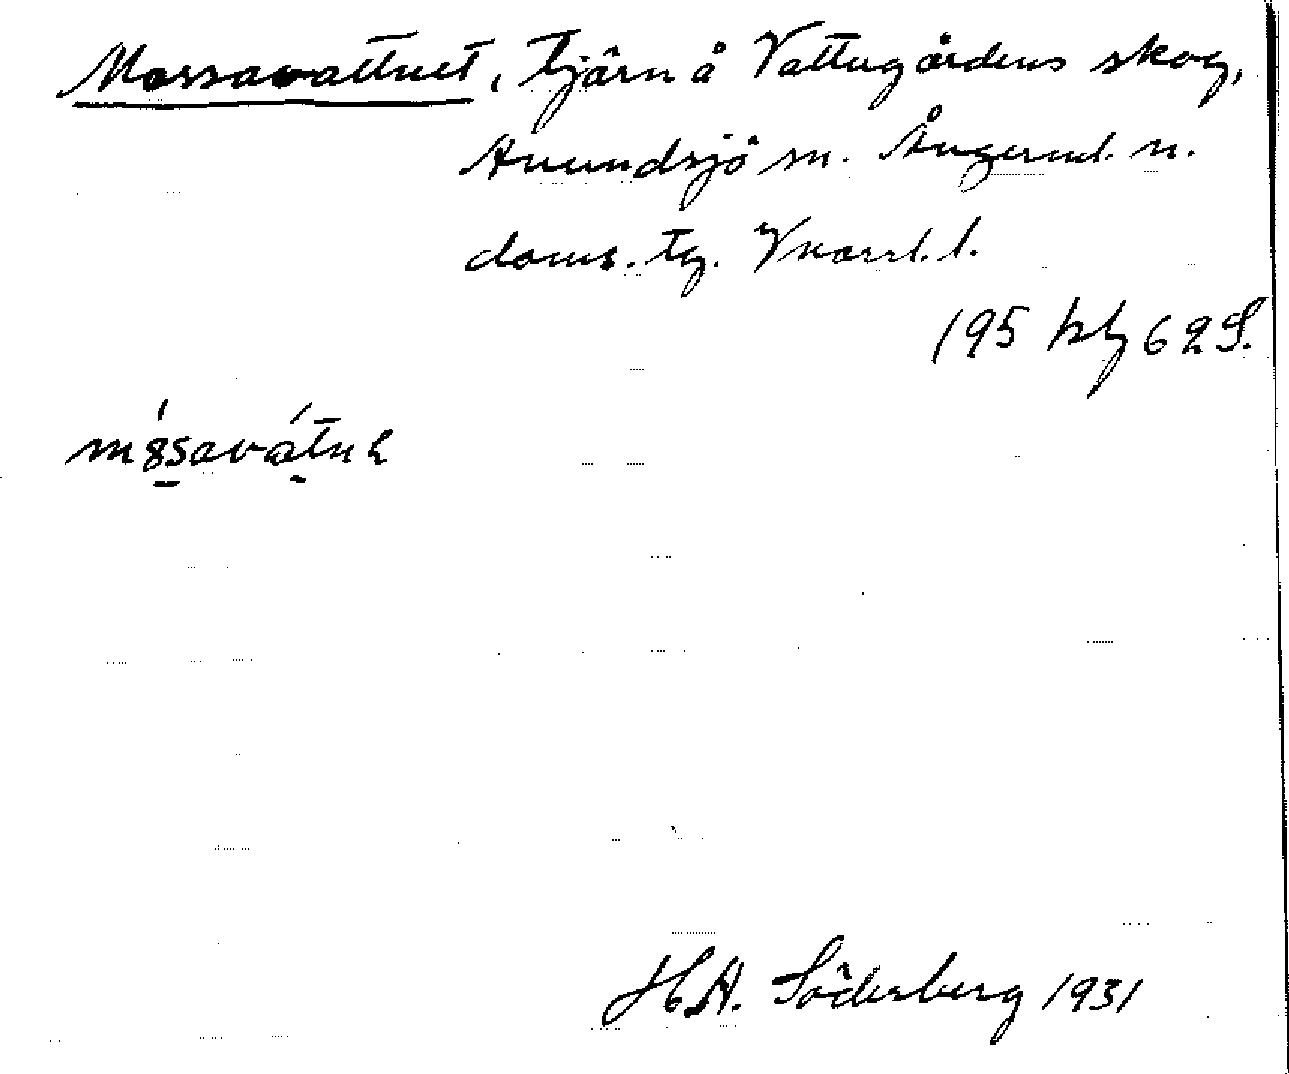 Mossavattnet, tjärn å Vattugårdens skog,
Anundsjö sn. Ångerml. n.
doms. tg. Vnorrl. l.
195 kbl 62 S.
H.A. Söderberg 1931